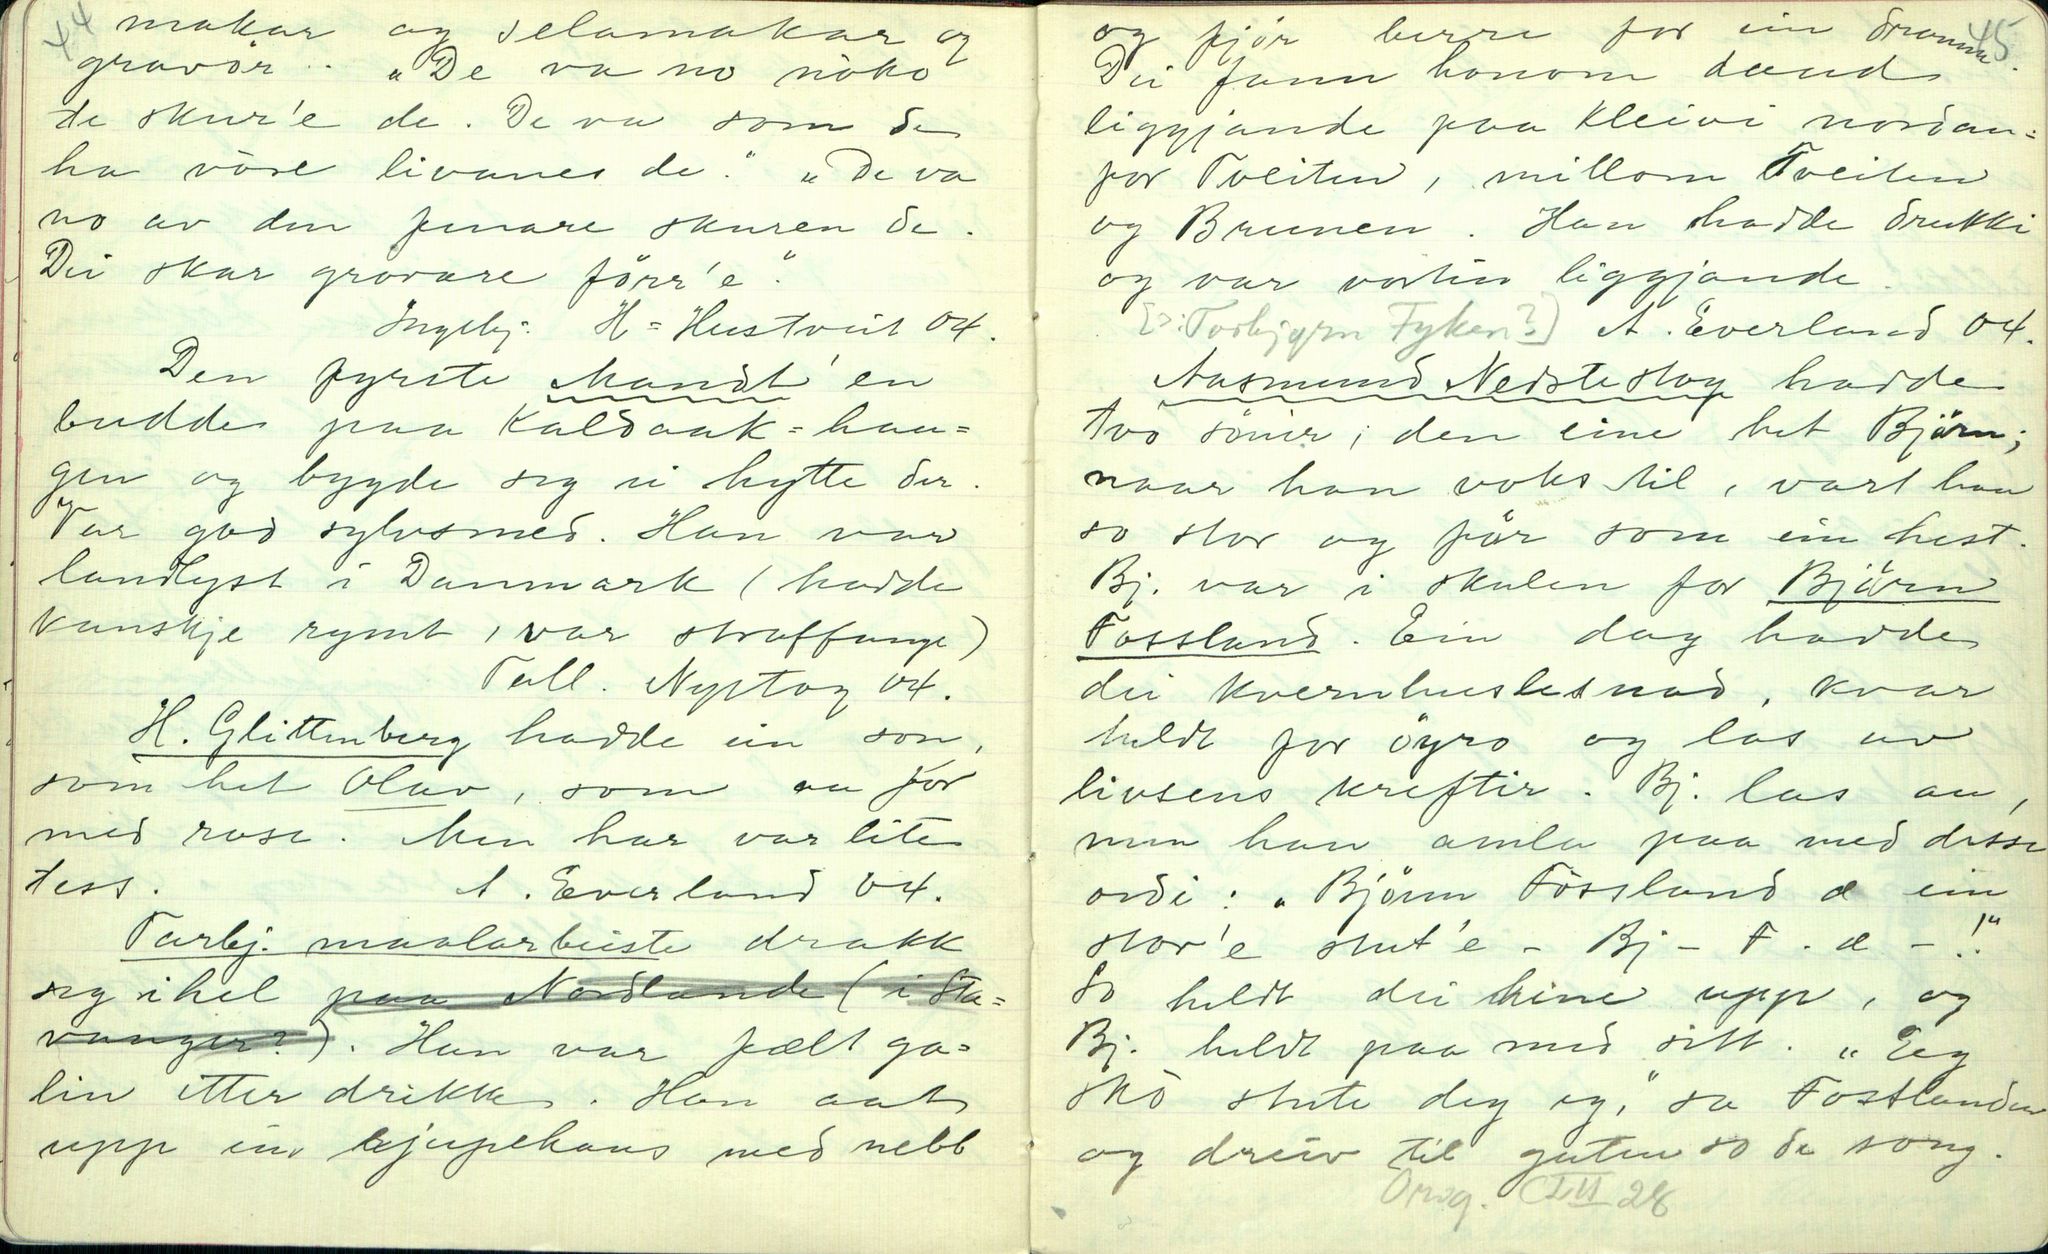 44
makar og selamakar og
gravör. "De va no nöko
de skur'e de. De va som de
ha vöre livanes de." "De va
no av den penare skuren de.
Dei skar grovare förr'e".
Ingebj. H=Hustveit 04.
Den fyrste Mandt'en
budde paa Kaldaak=hau=
gen og bygde seg ei hytte der.
Var god sylvsmed. Han var
landlyst i Danmark (hadde
kanskje rymt, var straffange)
Tall. Nystog 04.
H. Glittenberg hadde ein son,
som het Olav, som au for
med rose. Men har var lite
tess. A. Everland 04.
Tarbj. maalarbeiste drakk
seg ihel paa Nordlande (i Sta=
vanger?). Han var fælt ga=
lin etter drikke. Han aat
upp ein rjupehaus med nebb
45
og fjör berre for ein dramm.
Dei fann honom daud
liggjande paa Kleivi nordan=
for Tveiten, millom Tveiten
og Brunen. Han hadde drukki
og var vortin liggjande.
[ɔ: Torbjørn Fyken?] A. Everland 04.
Aasmund Nedstestog hadde
tvo sönir; den eine het Björn;
naar han voks til, vart han
so stor ogför som ein hest.
Bj. var i skulen for Björn
Fossland. Ein dag hadde
dei kvernhuslesnad, kvar
heldt for öyro og las av
livsens kreftir. Bj. las au,
men han amla paa med desse
ordi: "Björn Fössland æ ein
stor'e stut'e – Bj – F. æ – !"
So heldt dei hine upp, og
Bj. heldt paa med sitt. "Eg
skö stute deg eg," sa Fosslanden
og dreiv til guten so de song.
Omsq. CLII 28